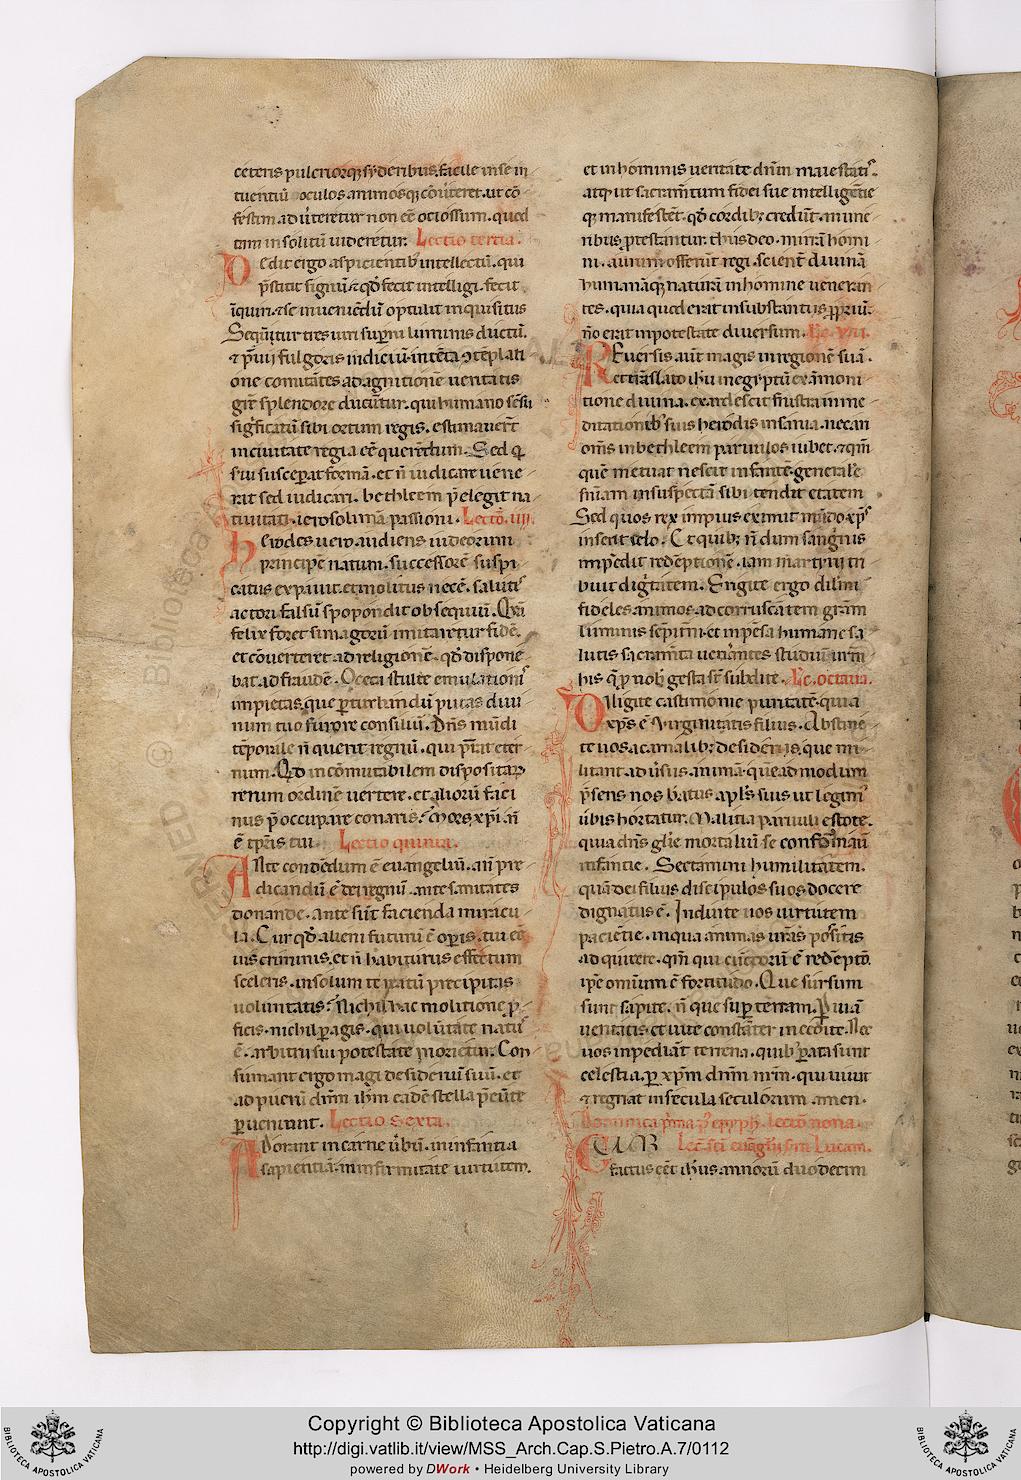 ceteris pulcriorq; syderibus. facile in se in
tuentiū oculos animosq; cōu̇teret. ut cō
festim aduerteretur non eē ociossum. quod
tam insolitū uideretur. Lectio tertia.
Dedit ergo aspicientib; intellectū. qui
p̄stitit signū. ⁊ qd̄ fecit intelligi. fecit
īquiri. ⁊ se inueniēdū optulit inquisitus
Sequūtur tres uiri sup̄ni luminis ductū.
⁊ p̄uii fulgoris indiciū. intēta ↄtēplati
one comitātes ad agnitionē ueritatis
grē splendore ducūtur. qui humano sēsu
sigficatū sibi ortum regis. estimauerūt
in ciuitate regia eē querēdum. Sed q̄
s̄ui susceperat formā. et n̄ iudicare uene
rat sed iudicari. bethleem p̄elegit na
tiuitati. ierosolimā passioni. Lectō. iiij.
Herodes uero audiens iudeorum
principē natum. successorē suspi
catus expauit. et molitus necē. salutis
actori falsū spopondit obsequiū. Qm̄
felix foret si magorū imitaretur fidē.
et cōuerteret ad religionē. qd̄ dispone
bat ad fraudē. O ceca stulte emulationis
impietas. que perturbandū putas diui
num tuo furore consiliū. Dn̄s mūdi
tēporale n̄ querit regnū. qui p̄stat eter
num. Qd̄ incōmutabilem dispositar
rerum ordinē uertere. et aliorū faci
nus p̄occupare conaris? Mors xp̄i n̄
ē tp̄ris tui. Lectio quinta.
Ante condēdum ē euangeliū. an̄ pre
dicandū ē dei regnū. ante sanitates
donande. ante sūt facienda miracu
la. Cur qd̄ alieni futurū ē operis. tui eē
uis criminis. et n̄ habiturus effectum
sceleris. in solum te reatū precipitas
uoluntatis? Nichil hac molitione p̄
ficis. nichil peragis. qui uolūtate natus
ē. arbitrii sui potestate morietur. Con
sumant ergo magi desideriū suū. et
ad puerū dn̄m ihm̄ eadē stella p̄eūte
perueniunt. Lectio sexta.
Adorant in carne u̇bū. in infantia
sapientiā. in infirmitate uirtutem.
et in hominis ueritate dn̄m maiestatis.
atq; ut sacramtum fidei sue intelligētie
q; manifestēt. qd̄ cordib; credūt. mune
ribus protestantur. thus deo. mirrā homi
ni. aurum offerūt regi. scient̄ diuinā
humanāq; naturā in homine ueneran
tes. quia quod erat in substantiis propriū.
nō erat in potestate diuersum. Lc̄. VII.
Reuersis aut̄ magis in regionē suā.
et trāslato ihū in egyptū ex āmoni
tione diuina. exardescit frustra in me
ditationib; suis herodis insania. necari
om̄s in bethleem paruulos iubet. ⁊ qm̄
quē metuat nescit infantē. generalē
sn̄iam in suspectā sibi tendit etatem
Sed quos rex impius eximit mūdo. xp̄s
inserit celo. Et quib; n̄ dum sanguinis
impēdit redēptionē. iam martyrii tri
buit dignitatem. Erigite ergo dilmi
fideles animos. ad corruscātem grām
luminis sempitni. et inpēsa humane sa
lutis sacramta uenerantes studiū urm̄
his q̄ p̄ nobis gesta st̄ subdite. Lc̄. octaua.
Diligite castimonie puritatē. quia
xp̄s ē virginitatis filius. Abstine
te uos a carnalib; desideriis. que mi
litant aduersus animā. quēadmodum
p̄sens nos batus apls̄ suis ut legim̄
u̇bis hortatur. Malitia paruuli estote.
quia dn̄s glie mortaliū se conformauit
infantie. Sectamini humilitatem.
quā dei filius discipulos suos docere
dignatus ē. Induite uos uirtutem
paciētie. in qua animas uras possitis
adquirere. qm̄ qui cunctorū ē redēpto.
ipe omiūm ē fortitudo. Que sursum
sunt sapite. n̄ que super terram. Per uiā
ueritatis. et uite constanter incedite. Nec
uos impediāt terrena. quib; parata sunt
celestia. per xpm̄ dn̄m nrm̄. qui uiuit
⁊ regnat in secula seculorum. amen.
Dominica p̄ma p̄ epyph. lectō nona.
CUM Lec̄. sci euāgelii scdm Lucam.
factus eēt ihus annorū duodecim
Copyright © Biblioteca Apostolica Vaticana
http://digi.vatlib.it/view/MSS_Arch.Cap.S.Pietro.A.7/0112
powered by DWork • Heidelberg University Library
BIBLIOTECA APOSTOLICA VATICANA
BIBLIOTECA APOSTOLICA VATICANA